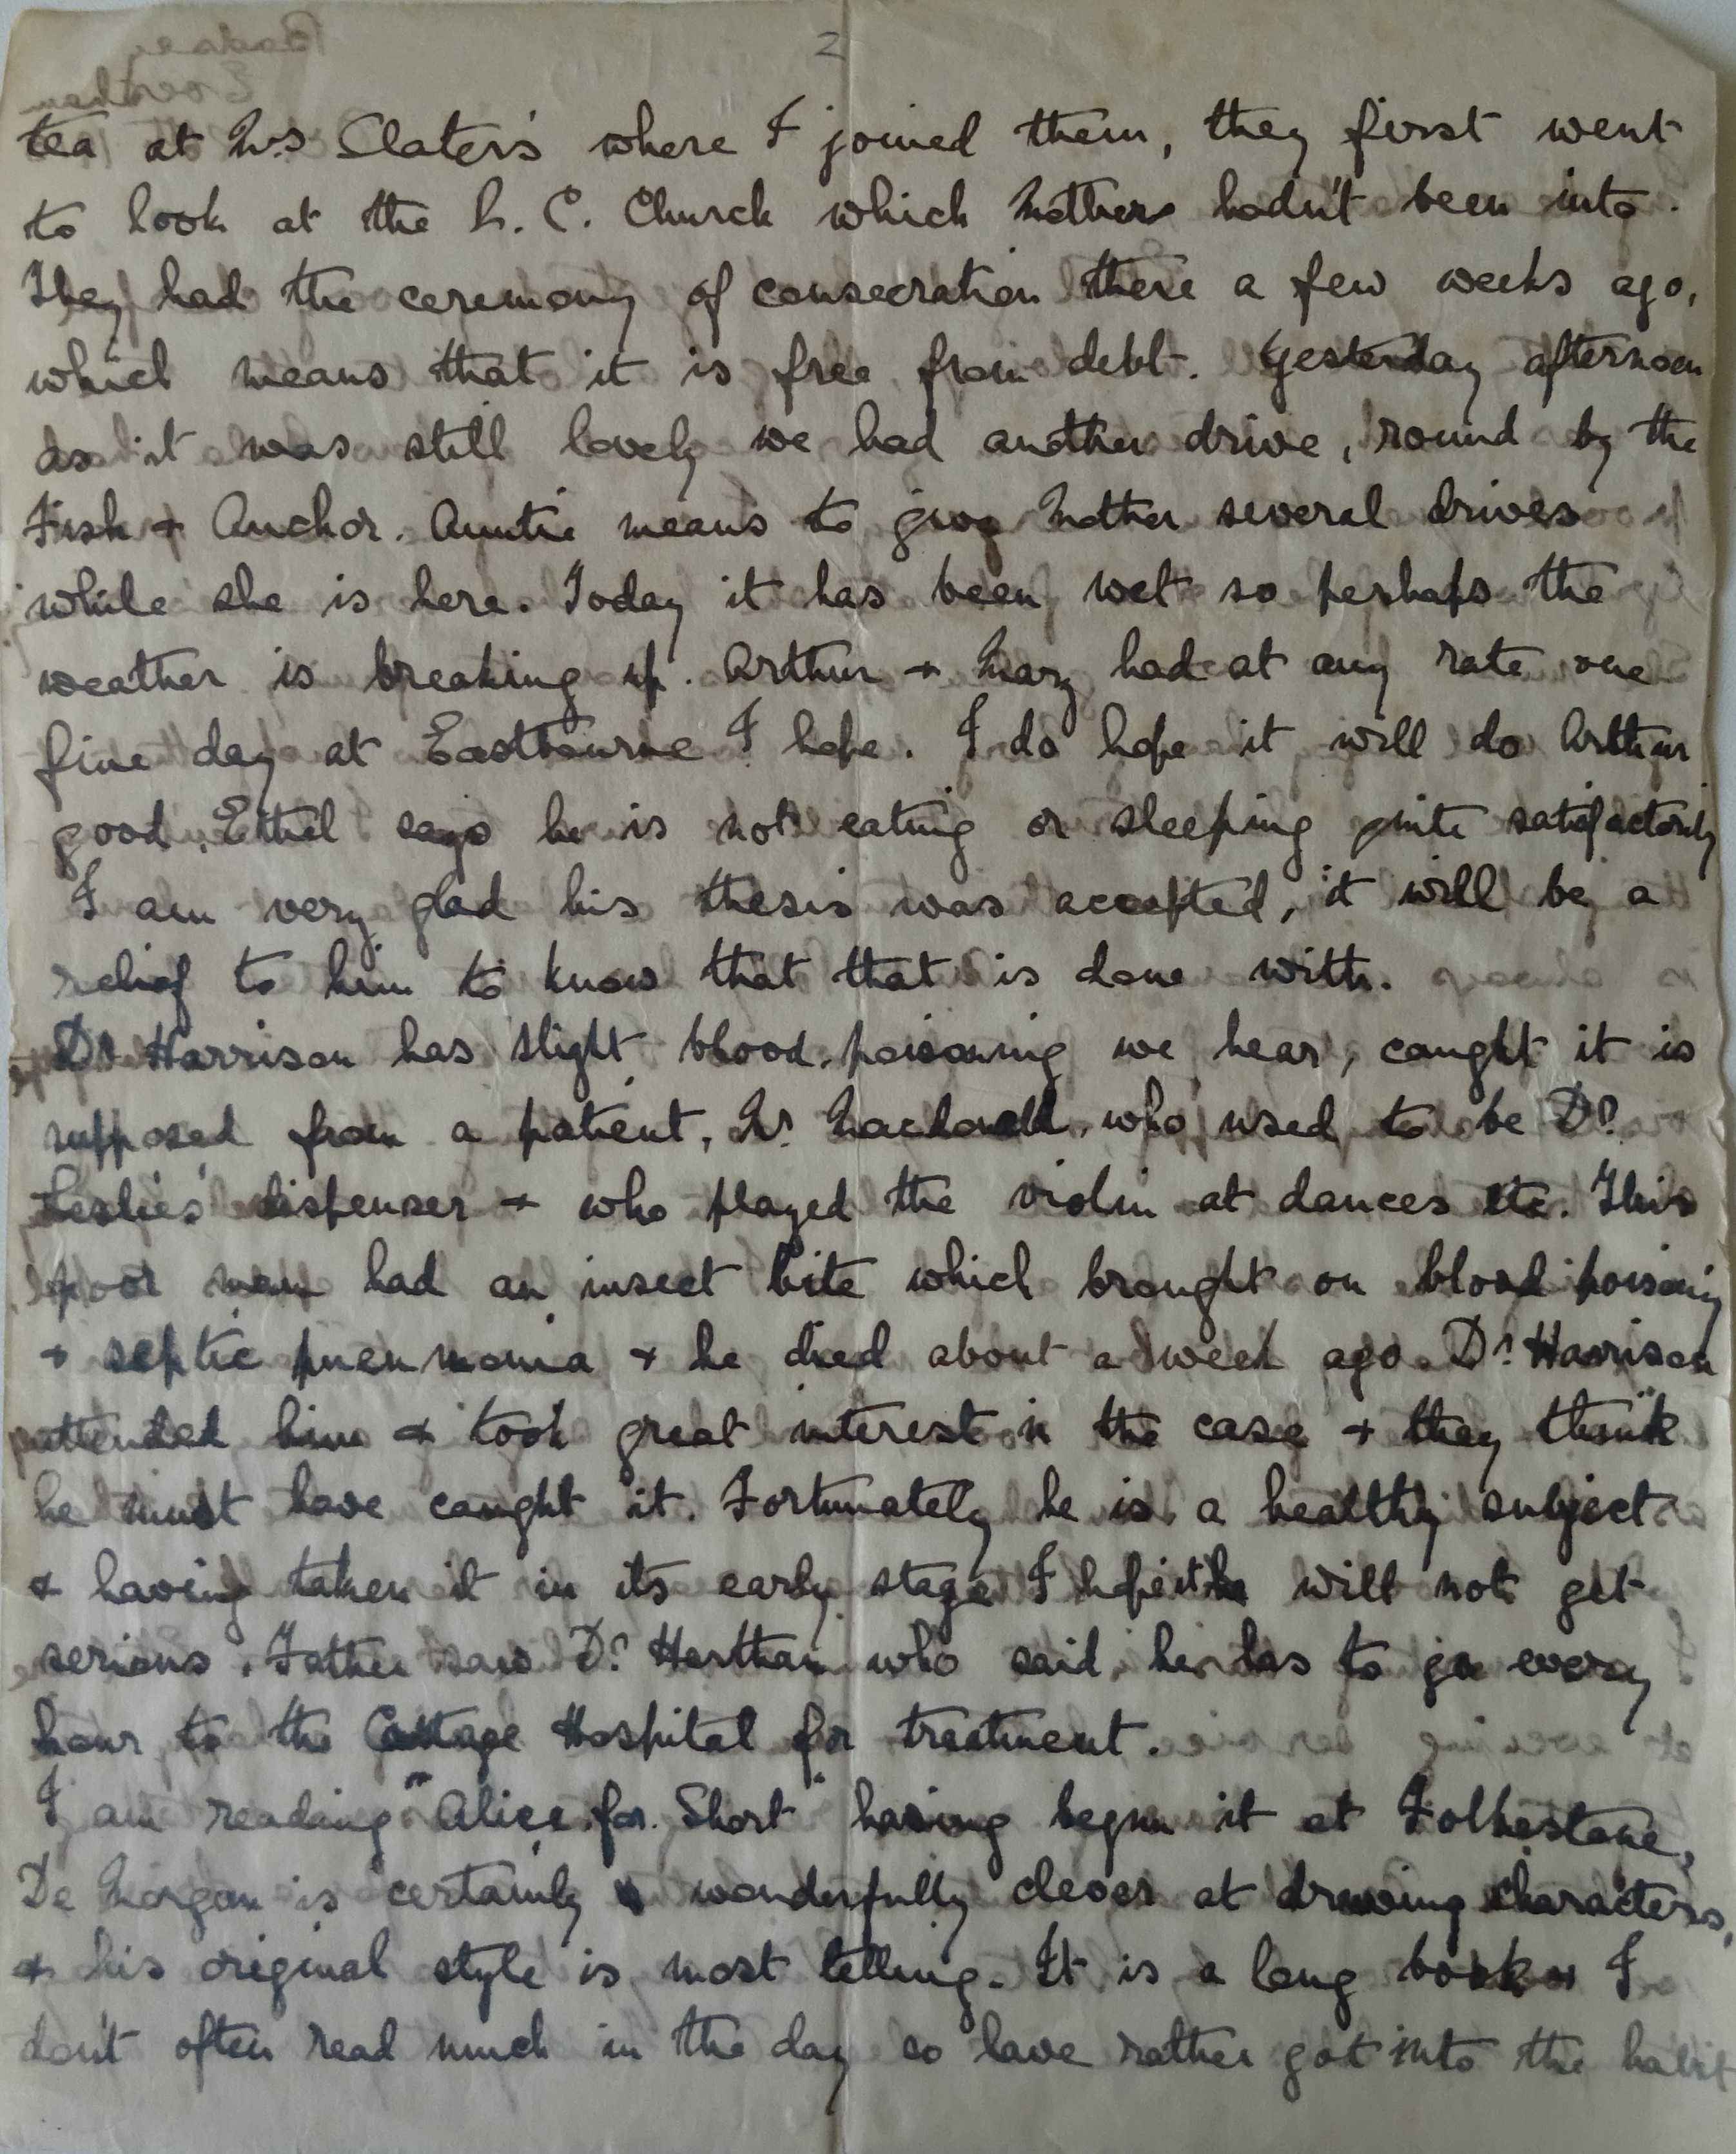 2
tea at Mrs Slater's where I joined them, they first went
to look at the R. C. Church which Mother hadn't been into.
They had the ceremony of consecration there a few weeks ago,
which means that it is free from debt. Yesterday afternoon
as it was still lovely we had another drive, round by the
Fish & Anchor. Auntie means to give Mother several drives
while she is here. Today it has been wet so perhaps the
weather is breaking up. Arthur & Mary had at any rate one
fine day at Eastbourne I hope. I do hope it will do Arthur
good. Ethel says he is not eating or sleeping quite satisfactorily
I am very glad his thesis was accepted, it will be a
relief to him to know that that is done with.
Dr Harrison has slight blood-poisoning we hear, caught it is
supposed from a patient, Mr. who used to be Dr.
Leslie's dispenser & who played the violin at dances etc. This
poor man had an insect bite which brought on blood poisoning
& septic pneumonia & he died about a week ago. Dr. Harrison
attended him & took great interest in the case & they think
he must have caught it. Fortunately he is a healthy subject
& having taken it in its early stage I hope it will not get
serious. Father saw Dr. who said he has to go every
hour to the Cottage Hospital for treatment.
I am reading "Alice for Short" having begun it at Folkestone,
De Morgan is certainly wonderfully clever at drawing characters,
& his original style is most telling. It is a long book & I
don't often read much in the day so have rather got into the habit